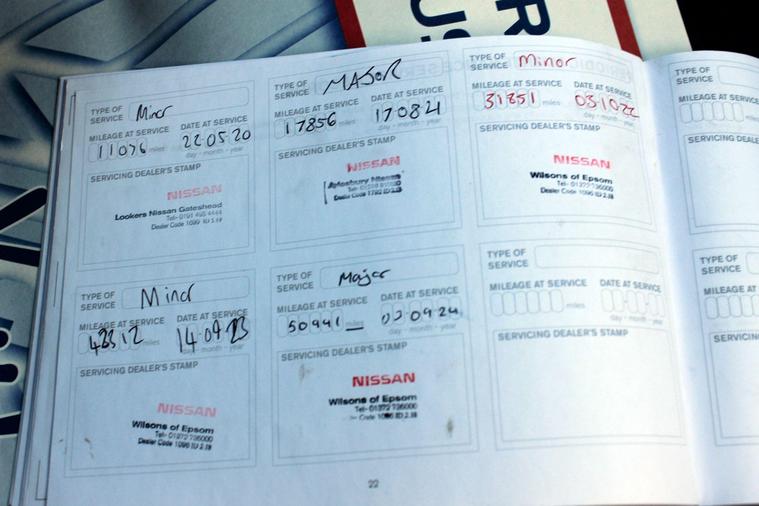 R
US
TYPE OF SERVICE Minor
MILEAGE AT SERVICE DATE AT SERVICE
11076 miles 22-05-20
day - month - year
SERVICING DEALER'S STAMP
NISSAN
Lookers Nissan Gateshead
Tel- 0191 495 4444
Dealer Code 1099 ID 2.18
TYPE OF SERVICE MAJOR
MILEAGE AT SERVICE DATE AT SERVICE
17856 miles 17-08-21
day - month - year
SERVICING DEALER'S STAMP
NISSAN
Aylesbury Nissan
TYPE OF SERVICE Minor
MILEAGE AT SERVICE DATE AT SERVICE
31851 miles 03-10-22
day - month - year
SERVICING DEALER'S STAMP
NISSAN
Wilsons of Epsom
Tel- 01372 736000
Dealer Code 1096 ID 2.18
TYPE OF SERVICE
MILEAGE
SERVICING DE
TYPE OF SERVICE Minor
MILEAGE AT SERVICE DATE AT SERVICE
14-09-23
month - year
SERVICING DEALER'S STAMP
NISSAN
Wilsons of Epsom
Tel- 01372 736000
Dealer Code 1096 ID 2.18
TYPE OF SERVICE Major
MILEAGE AT SERVICE DATE AT SERVICE
50941 miles 09-24
day - month - year
SERVICING DEALER'S STAMP
NISSAN
Wilsons of Epsom
Tel- 01372 736000
Code 1096 ID 2.18
TYPE OF SERVICE
MILEAGE AT SERVICE DATE AT SERVICE
miles
day - month - year
SERVICING DEALER'S STAMP
TYPE OF SERVICE
MILEAGE AT
SERVICING
22